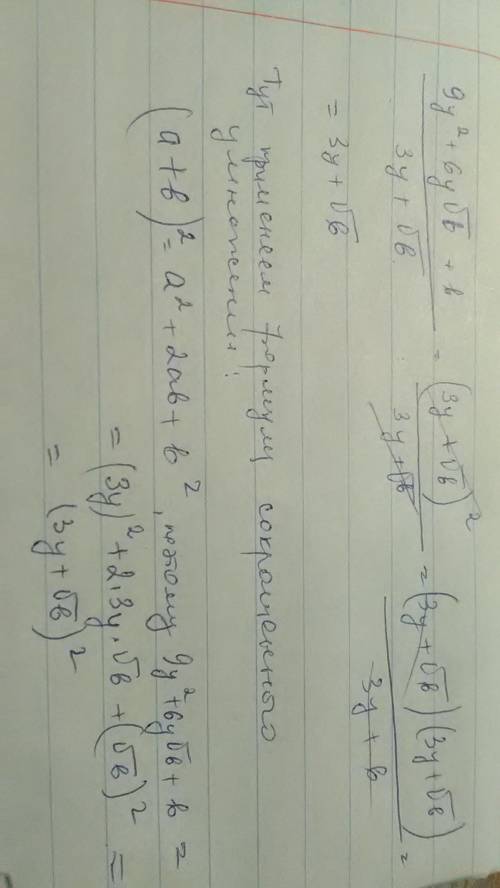 9y² + 6y√в + в / 3y + √в = (3y + √в)² / 3y + √в = (3y + √в)(3y + √в) / 3y + в =
= 3y + √в
Тут применяем формулу сокращенного
умножения:
(a + в)² = a² + 2aв + в², поэтому 9y² + 6y√в + в =
= (3y)² + 2·3y·√в + (√в)² =
= (3y + √в)²